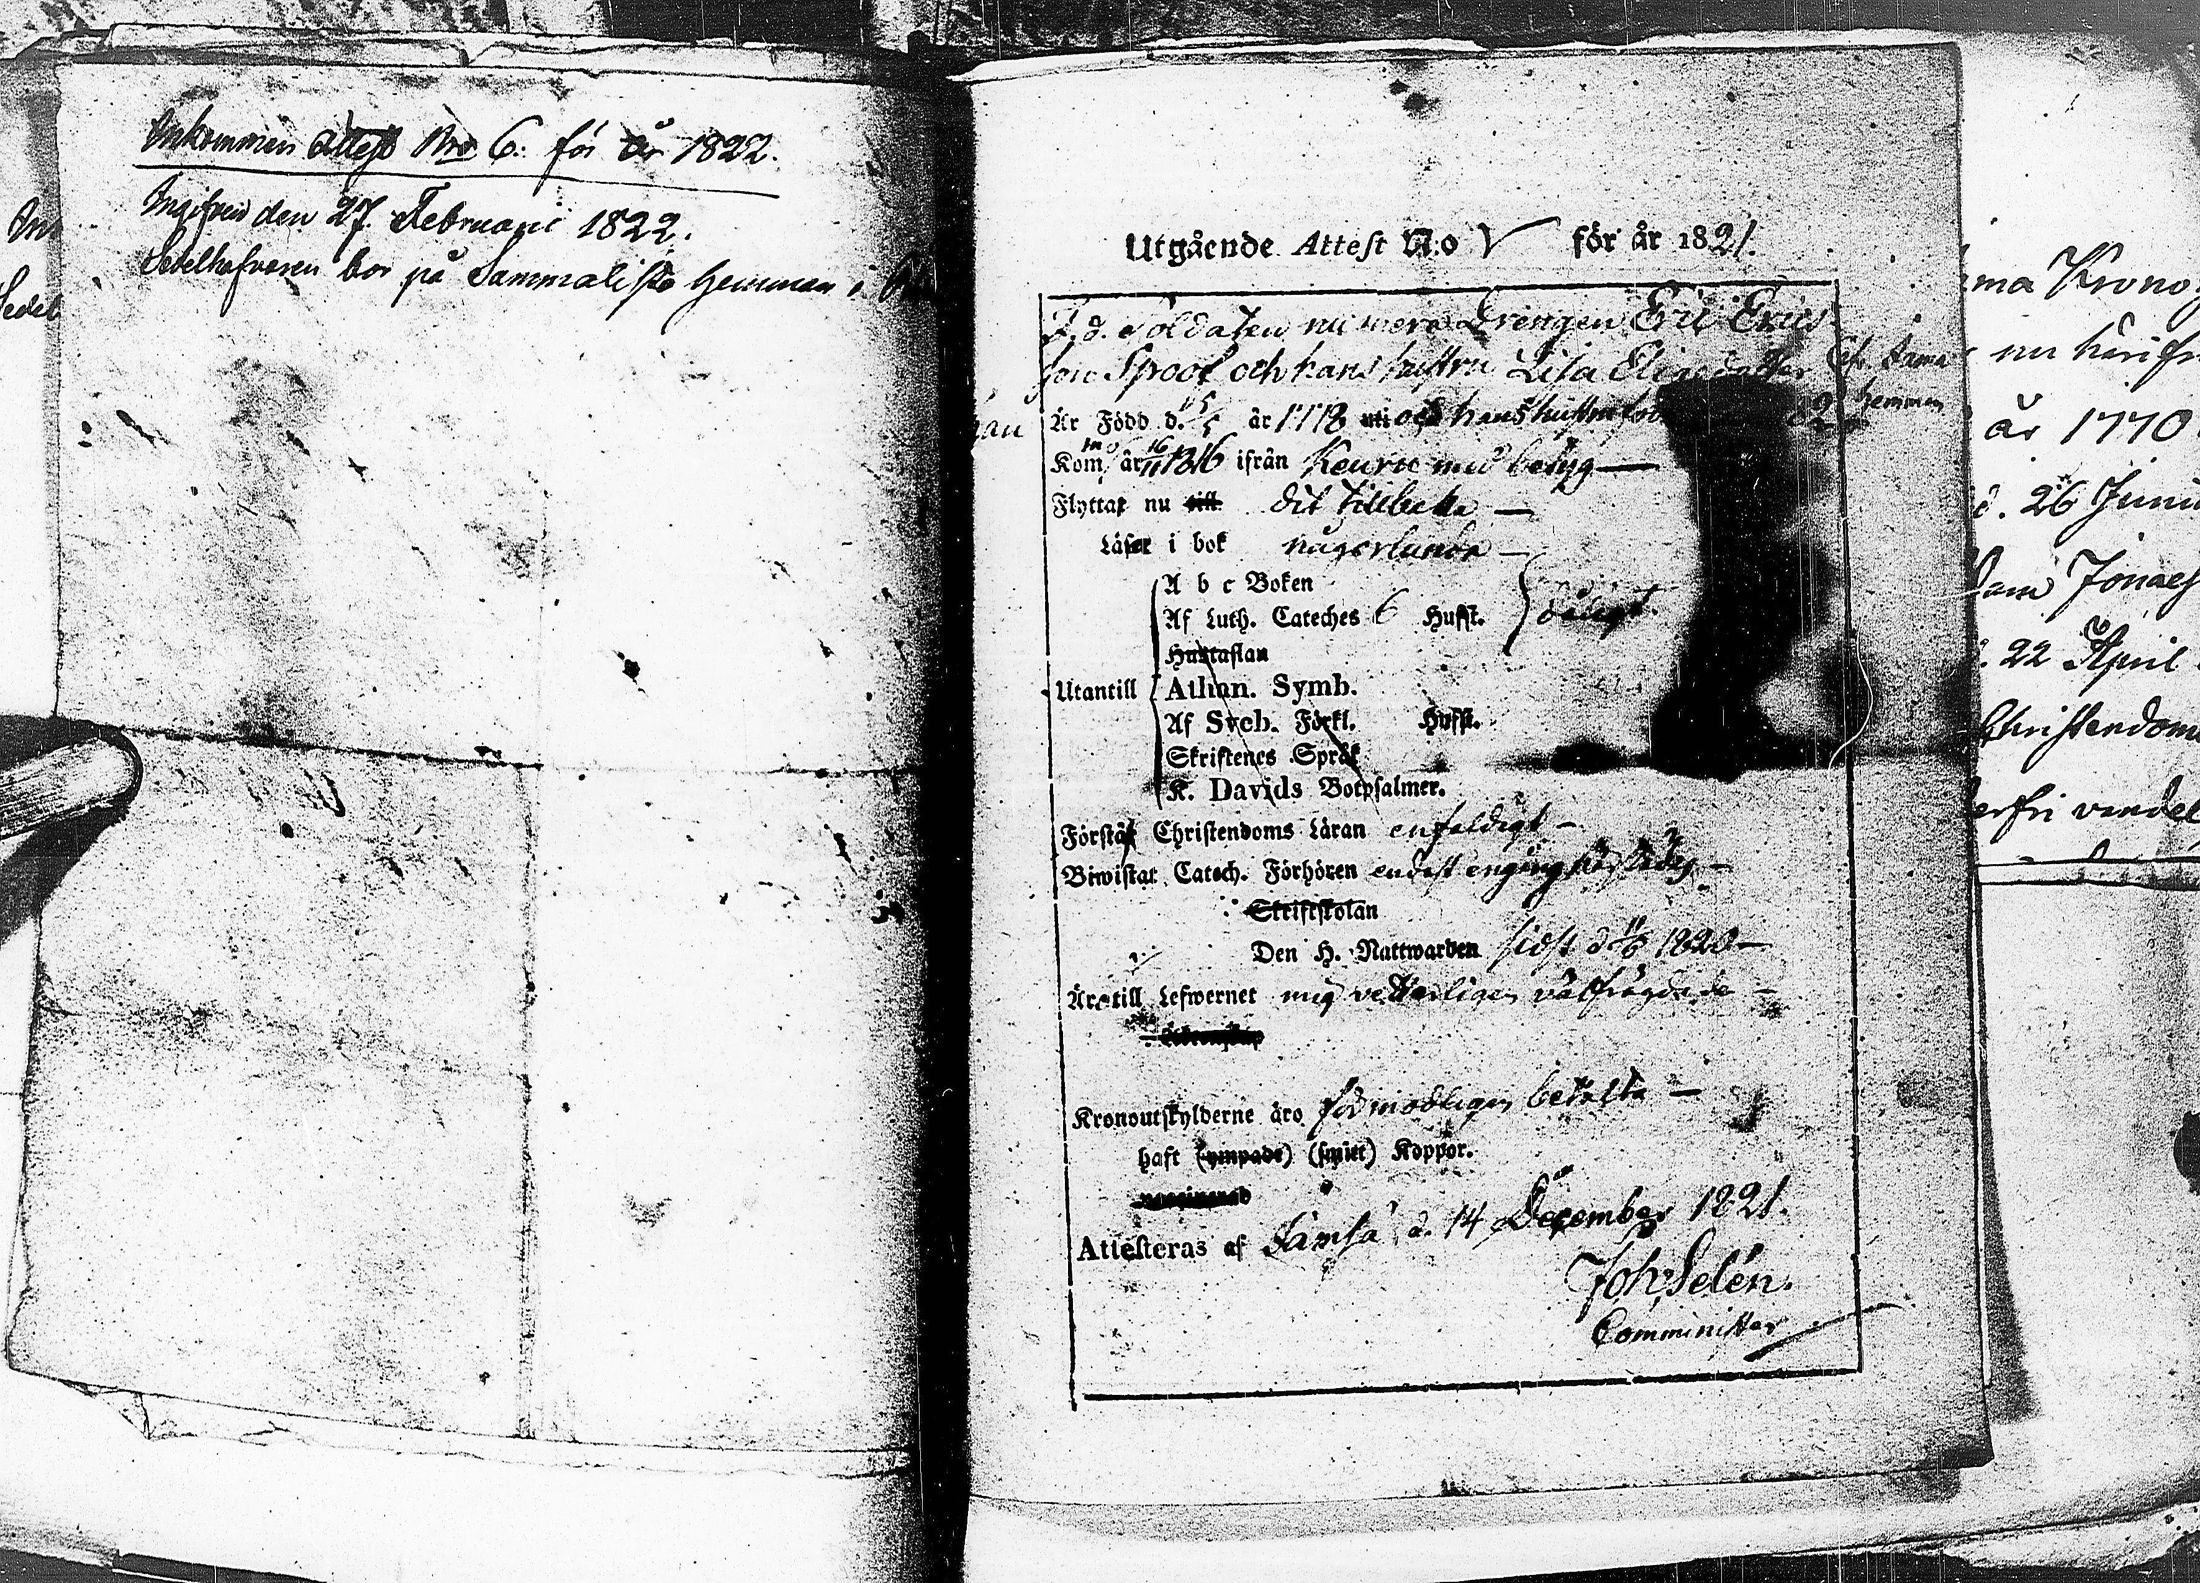 Inkommen attest Nro 6. för år 1822.
Ingifven den 27 Februarii 1822.
Sedelhafvaren bor på Sammalisto hemman i
Utgående Attest N:o V för år 1821.
F. d. Soldaten numera Drengen Eric Erics
son Spoof och hans hustru Lisa Eliaedotter
hemman
Är Född d. år 1778 och hans hustru
Kom år 16/11 1816 ifrån Keuru med betyg —
Flyttar nu till dit tillbaka —
Läser i bok någorlunda —
A b c Boken
Af Luth. Cateches 6 Hufst. } dåligt
Hustaflan
Utantill { Athan. Symb.
Af Sveb. Förkl. Hufst.
Skriftenes Språk
K. Davids Botpsalmer.
Förstår Christendoms Läran enfaldigt —
Biwistat Catech. Förhören endast engång
Skriftskolan
Den H. Nattwarden sidst d 1820 —
Äro till Lefwernet mig veterligen välfrägdade —
Kronoutskylderne äro förmodligen betalta —
haft (ympade) (smitt) Koppor.
Attesteras af Jämsä d. 14 December 1821.
Joh. Selén.
Comminister
ma Krono
nu härifr
år 1770
d. 26 Junii
Jonaes
22 April
Christendom
erfri vandel